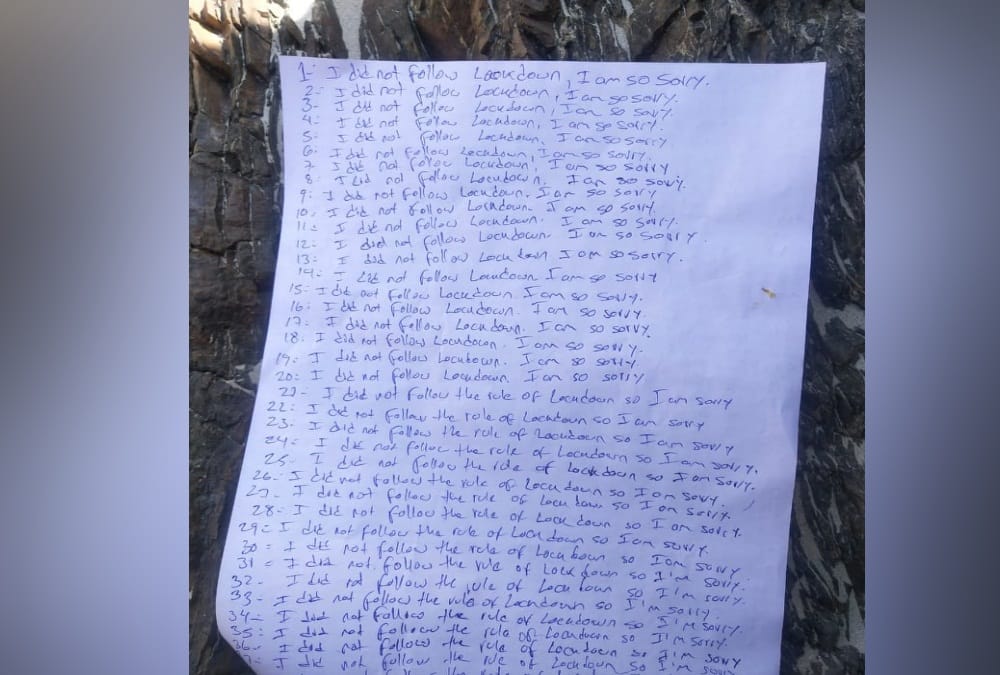 1- I did not follow Lockdown, I am so sorry.
2- I did not follow Lockdown, I am so sorry.
3- I did not follow Lockdown, I am so sorry.
4- I did not follow Lockdown, I am so sorry.
5- I did not follow Lockdown, I am so sorry.
6- I did not follow Lockdown, I am so sorry.
7- I did not follow Lockdown, I am so sorry
8- I did not follow Lockdown. I am so sorry.
9- I did not follow Lockdown. I am so sorry
10- I did not follow Lockdown. I am so sorry.
11- I did not follow Lockdown. I am so sorry.
12- I did not follow Lockdown. I am so sorry.
13- I did not follow Lockdown I am so sorry.
14- I did not follow Lockdown I am so sorry
15- I did not follow Lockdown I am so sorry.
16- I did not follow Lockdown. I am so sorry.
17- I did not follow Lockdown. I am so sorry.
18- I did not follow Lockdown. I am so sorry.
19- I did not follow Lockdown. I am so sorry.
20- I did not follow Lockdown. I am so sorry
21- I did not follow the role of Lockdown so I am sorry
22- I did not follow the role of Lockdown so I am sorry
23- I did not follow the rule of Lockdown so I am sorry
24- I did not follow the role of Lockdown so I am sorry.
25- I did not follow the role of Lockdown so I am sorry.
26- I did not follow the role of Lockdown so I am sorry.
27- I did not follow the role of Lockdown so I am sorry.
28- I did not follow the role of Lockdown so I am sorry.
29- I did not follow the role of Lockdown so I am sorry.
30- I did not follow the role of Lockdown so I am sorry
31- I did not follow the rule of Lockdown so I'm sorry.
32- I did not follow the rule of Lockdown so I'm sorry.
33- I did not follow the rule of Lockdown so I'm sorry.
34- I did not follow the role of Lockdown so I'm sorry.
35- I did not follow the role of Lockdown so I'm sorry.
36- I did not follow the role of Lockdown so I'm sorry
I did not follow the role of Lockdown so I'm sorry